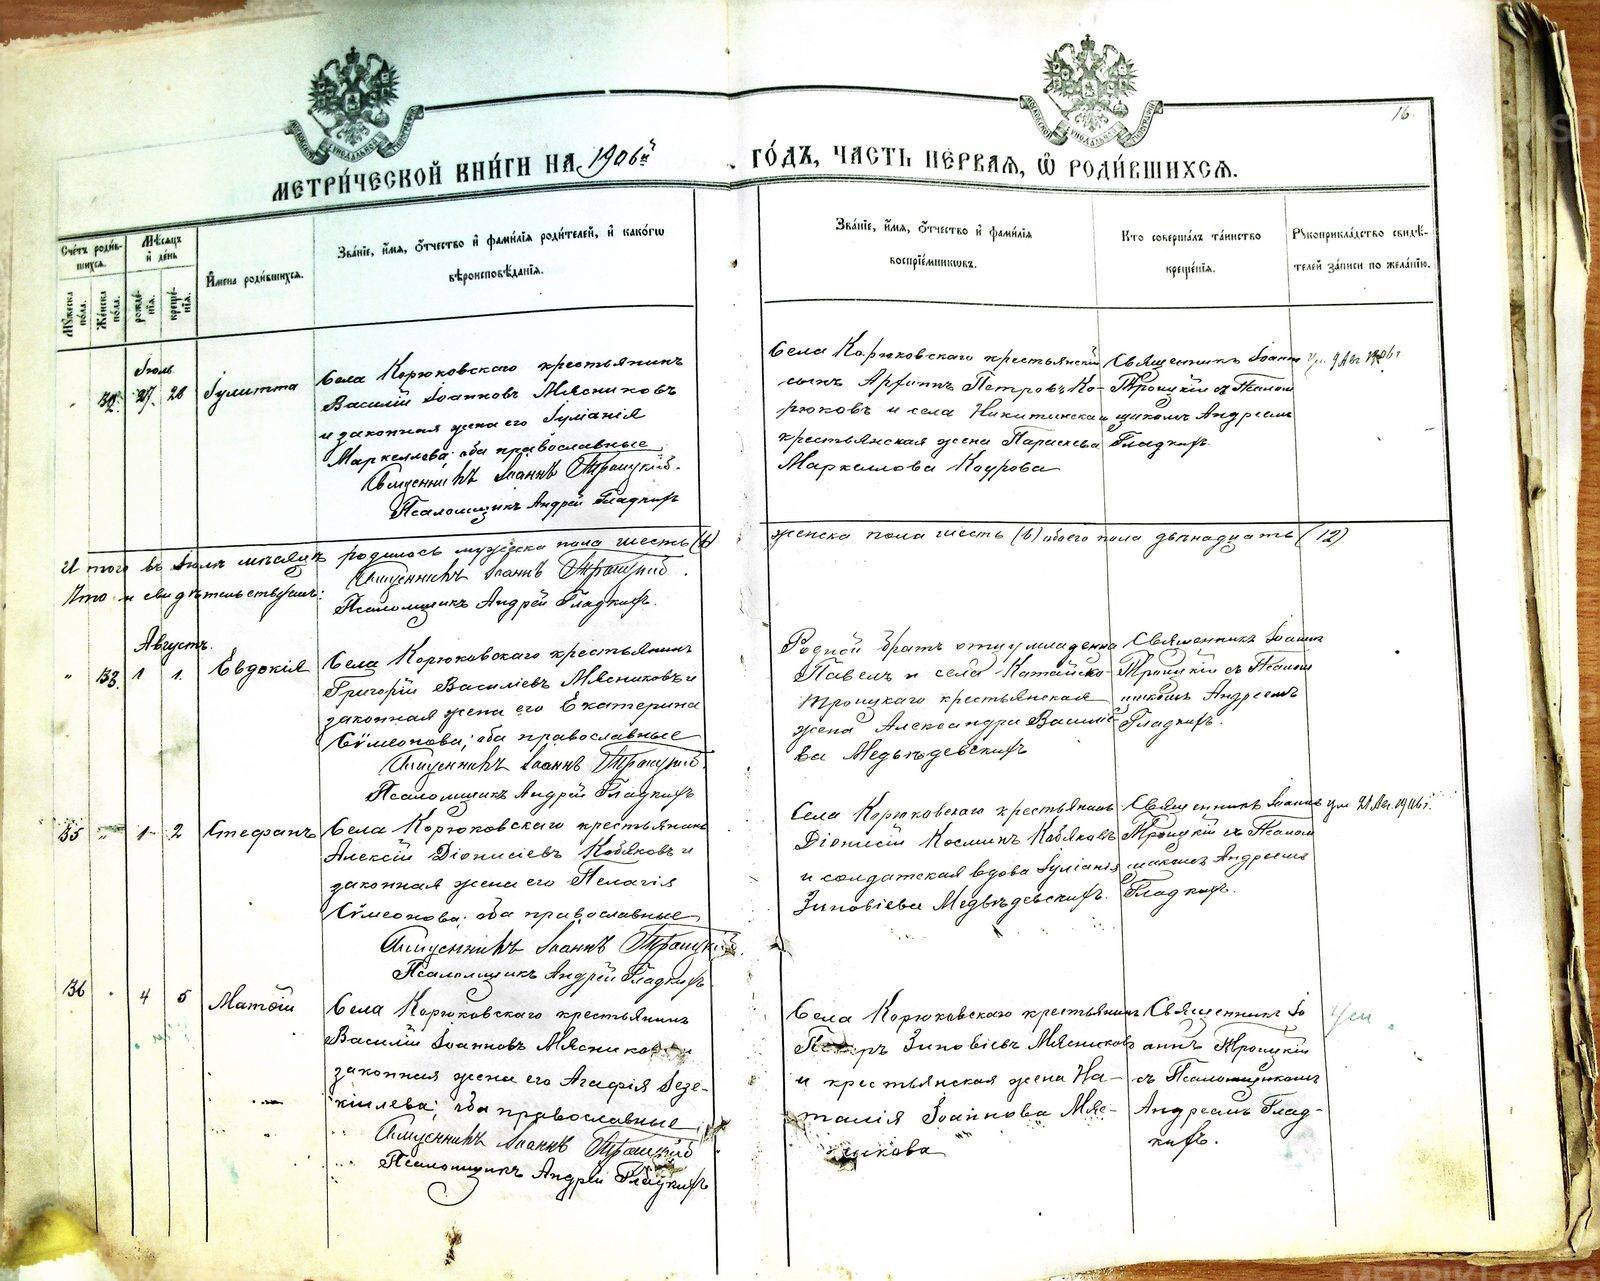 16.
МЕТРИ́ЧЕСКОЙ КНИ́ГИ НА 1906й ГО́ДЪ, ЧАСТЬ ПЕ́РВАѦ, Ѡ҆ РОДИ́ВШИХСѦ.
Сче́тъ роди́вшихсѧ.
Мꙋ́жеска по́ла.
Же́нска по́ла.
Мѣ́сѧцъ и҆ де́нь
рожде́нїѧ.
креще́нїѧ.
И҆мена роди́вшихсѧ.
Зва́нїе, и҆́мѧ, ѻ҆́тчество и҆ фами́лїѧ роди́телей, и҆ како́гѡ
вѣроисповѣ́данїѧ.
Зва́нїе, и҆́мѧ, ѻ҆́тчество и҆ фами́лїѧ
воспрїе́мникѡвъ.
Кто̀ соверша́лъ та́инство
креще́нїѧ.
Рꙋкоприкла́дство свидѣ́телей за́писи по жела́нїю.
Іюль
27. 28 Іулитта
Села Корюковскаго крестьянинъ
Василій Іоанновъ Мясниковъ
и законная жена его Іуліанія
Маркеллева; оба православные
Священникъ Іоаннъ Троицкій.
Псаломщикъ Андрей Гладкихъ
Села Корюковскаго крестьянскій
сынъ Петровъ Ко-
рюковъ и села Никитинская
крестьянская жена Параскева
Маркеллова Каурова
Священникъ Іоаннъ
Троицкій съ Псалом
щикомъ Андреемъ
Гладкихъ.
Ум. 9 Авг 1906 г
Итого въ Іюлѣ мѣсяцѣ родилось мужеска пола шесть (6) женска пола шесть (6) обоего пола двѣнадцать (12)
Священникъ Іоаннъ Троицкій.
Что и свидѣтельствуемъ:
Псаломщикъ Андрей Гладкихъ.
Августъ.
" 133. 1 1. Евдокія
Села Корюковскаго крестьянинъ
Григорій Василіевъ Мясниковъ и
законная жена его Екатерина
Сѵмеонова; оба православные
Священникъ Іоаннъ Троицкій.
Псаломщикъ Андрей Гладкихъ
Родной братъ отцу младенца
Павелъ и села Катайско-
Троицкаго крестьянская
жена Александра Василіе
ва Медвѣдевскихъ
Священникъ Іоаннъ
Троицкій съ Псалом
щикомъ Андреемъ
Гладкихъ.
135 " 1 2 Стефанъ
Села Корюковскаго крестьянинъ
Алексій Діонисіевъ Кобяковъ и
законная жена его Пелагія
Сѵмеонова; оба православные
Священникъ Іоаннъ Троицкій.
Псаломщикъ Андрей Гладкихъ
Села Корюковскаго крестьянинъ
Діонисій Косминъ Кобяковъ
и солдатская вдова Іуліанія
Зиновіева Медвѣдевскихъ.
Священникъ Іоаннъ
Троицкій съ Псалом
щикомъ Андреемъ
Гладкихъ.
ум 21 Авг. 1906 г.
136 4 5 Матѳій
Села Корюковскаго крестьянинъ
Василій Іоанновъ Мясниковъ и
законная жена его Агафія Іезе-
кіилева; оба православные;
Священникъ Іоаннъ Троицкій
Псаломщикъ Андрей Гладкихъ
Села Корюковскаго крестьянинъ
Зиновіевъ Мясниковъ
и крестьянская жена На-
талія Іоаннова Мяс-
никова
Священникъ Іо
аннъ Троицкій
съ Псаломщикомъ
Андреемъ Глад-
кихъ.
Ум.